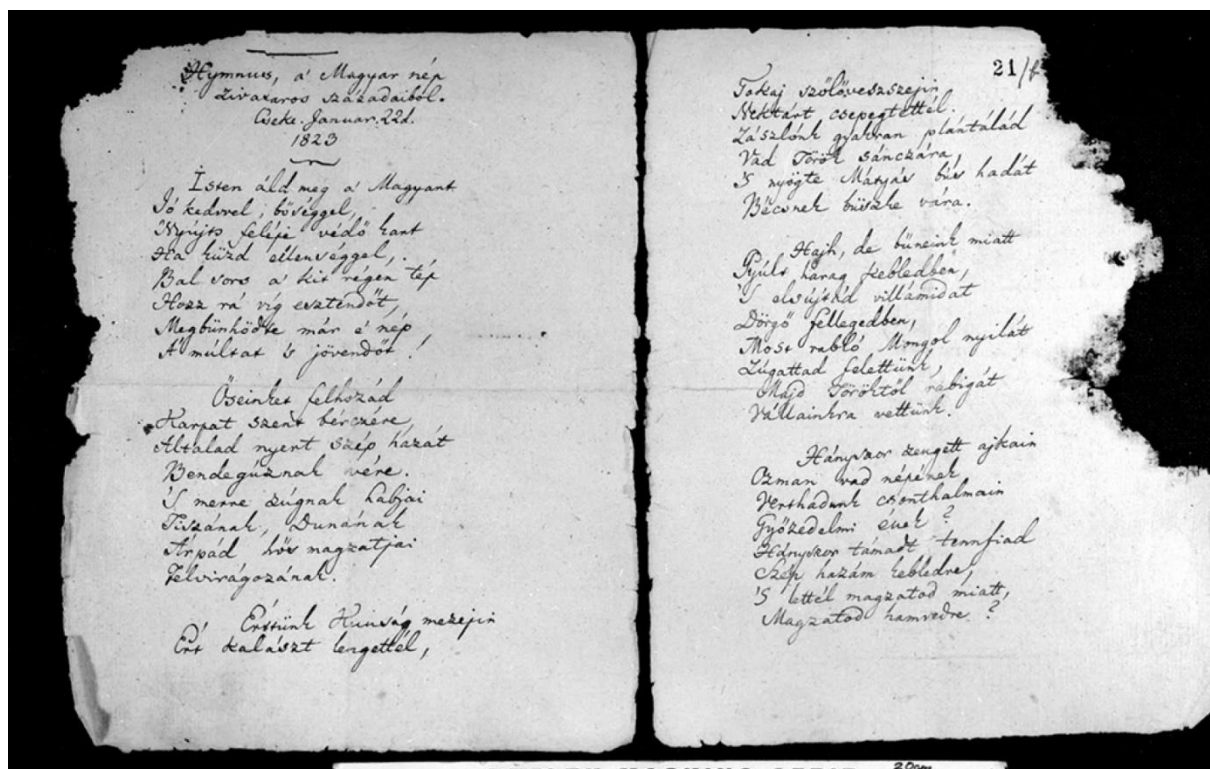 Hymnus, a' Magyar nép
zivataros századaiból.
Cseke. Januar. 22d.
1823
Isten áld meg a' Magyart
Jó kedvvel, bőséggel,
Nyújts feléje védő kart
Ha küzd ellenséggel,
Bal sors a' kit régen tép
Hozz rá víg esztendőt,
Megbűnhödte már e' nép
A' múltat 's jövendőt!
Őseinket felhozád
Karpat szent bérczére
Altalad nyert szép hazát
Bendegúznak vére.
'S merre zúgnak habjai
Tiszának, Dunának
Árpád hős magzatjai
Felvirágozának.
Értünk Kunság mezejin
Ért kalászt lengettél,
21/
Tokaj szőlővesszejin
Nektárt csepegtettél.
Zászlónk gyakran plántálád
Vad Török sánczára,
'S nyögte Mátyás bús hadát
Bécsnek büszke vára.
Hajh, de bűneink miatt
Gyúlt harag kebledben,
'S elsújtád villámidat
Dörgő fellegedben,
Most rabló Mongol nyilát
Zúgattad felettünk,
Majd Töröktől rabigát
Vállainkra vettünk.
Hányszor zengett ajkain
Ozman vad népének
Vert hadunk csonthalmain
Győzedelmi ének?
Hányszor támadt tennfiad
Szép hazám kebledre,
'S lettél magzatod miatt,
Magzatod hamvedre?
20cm